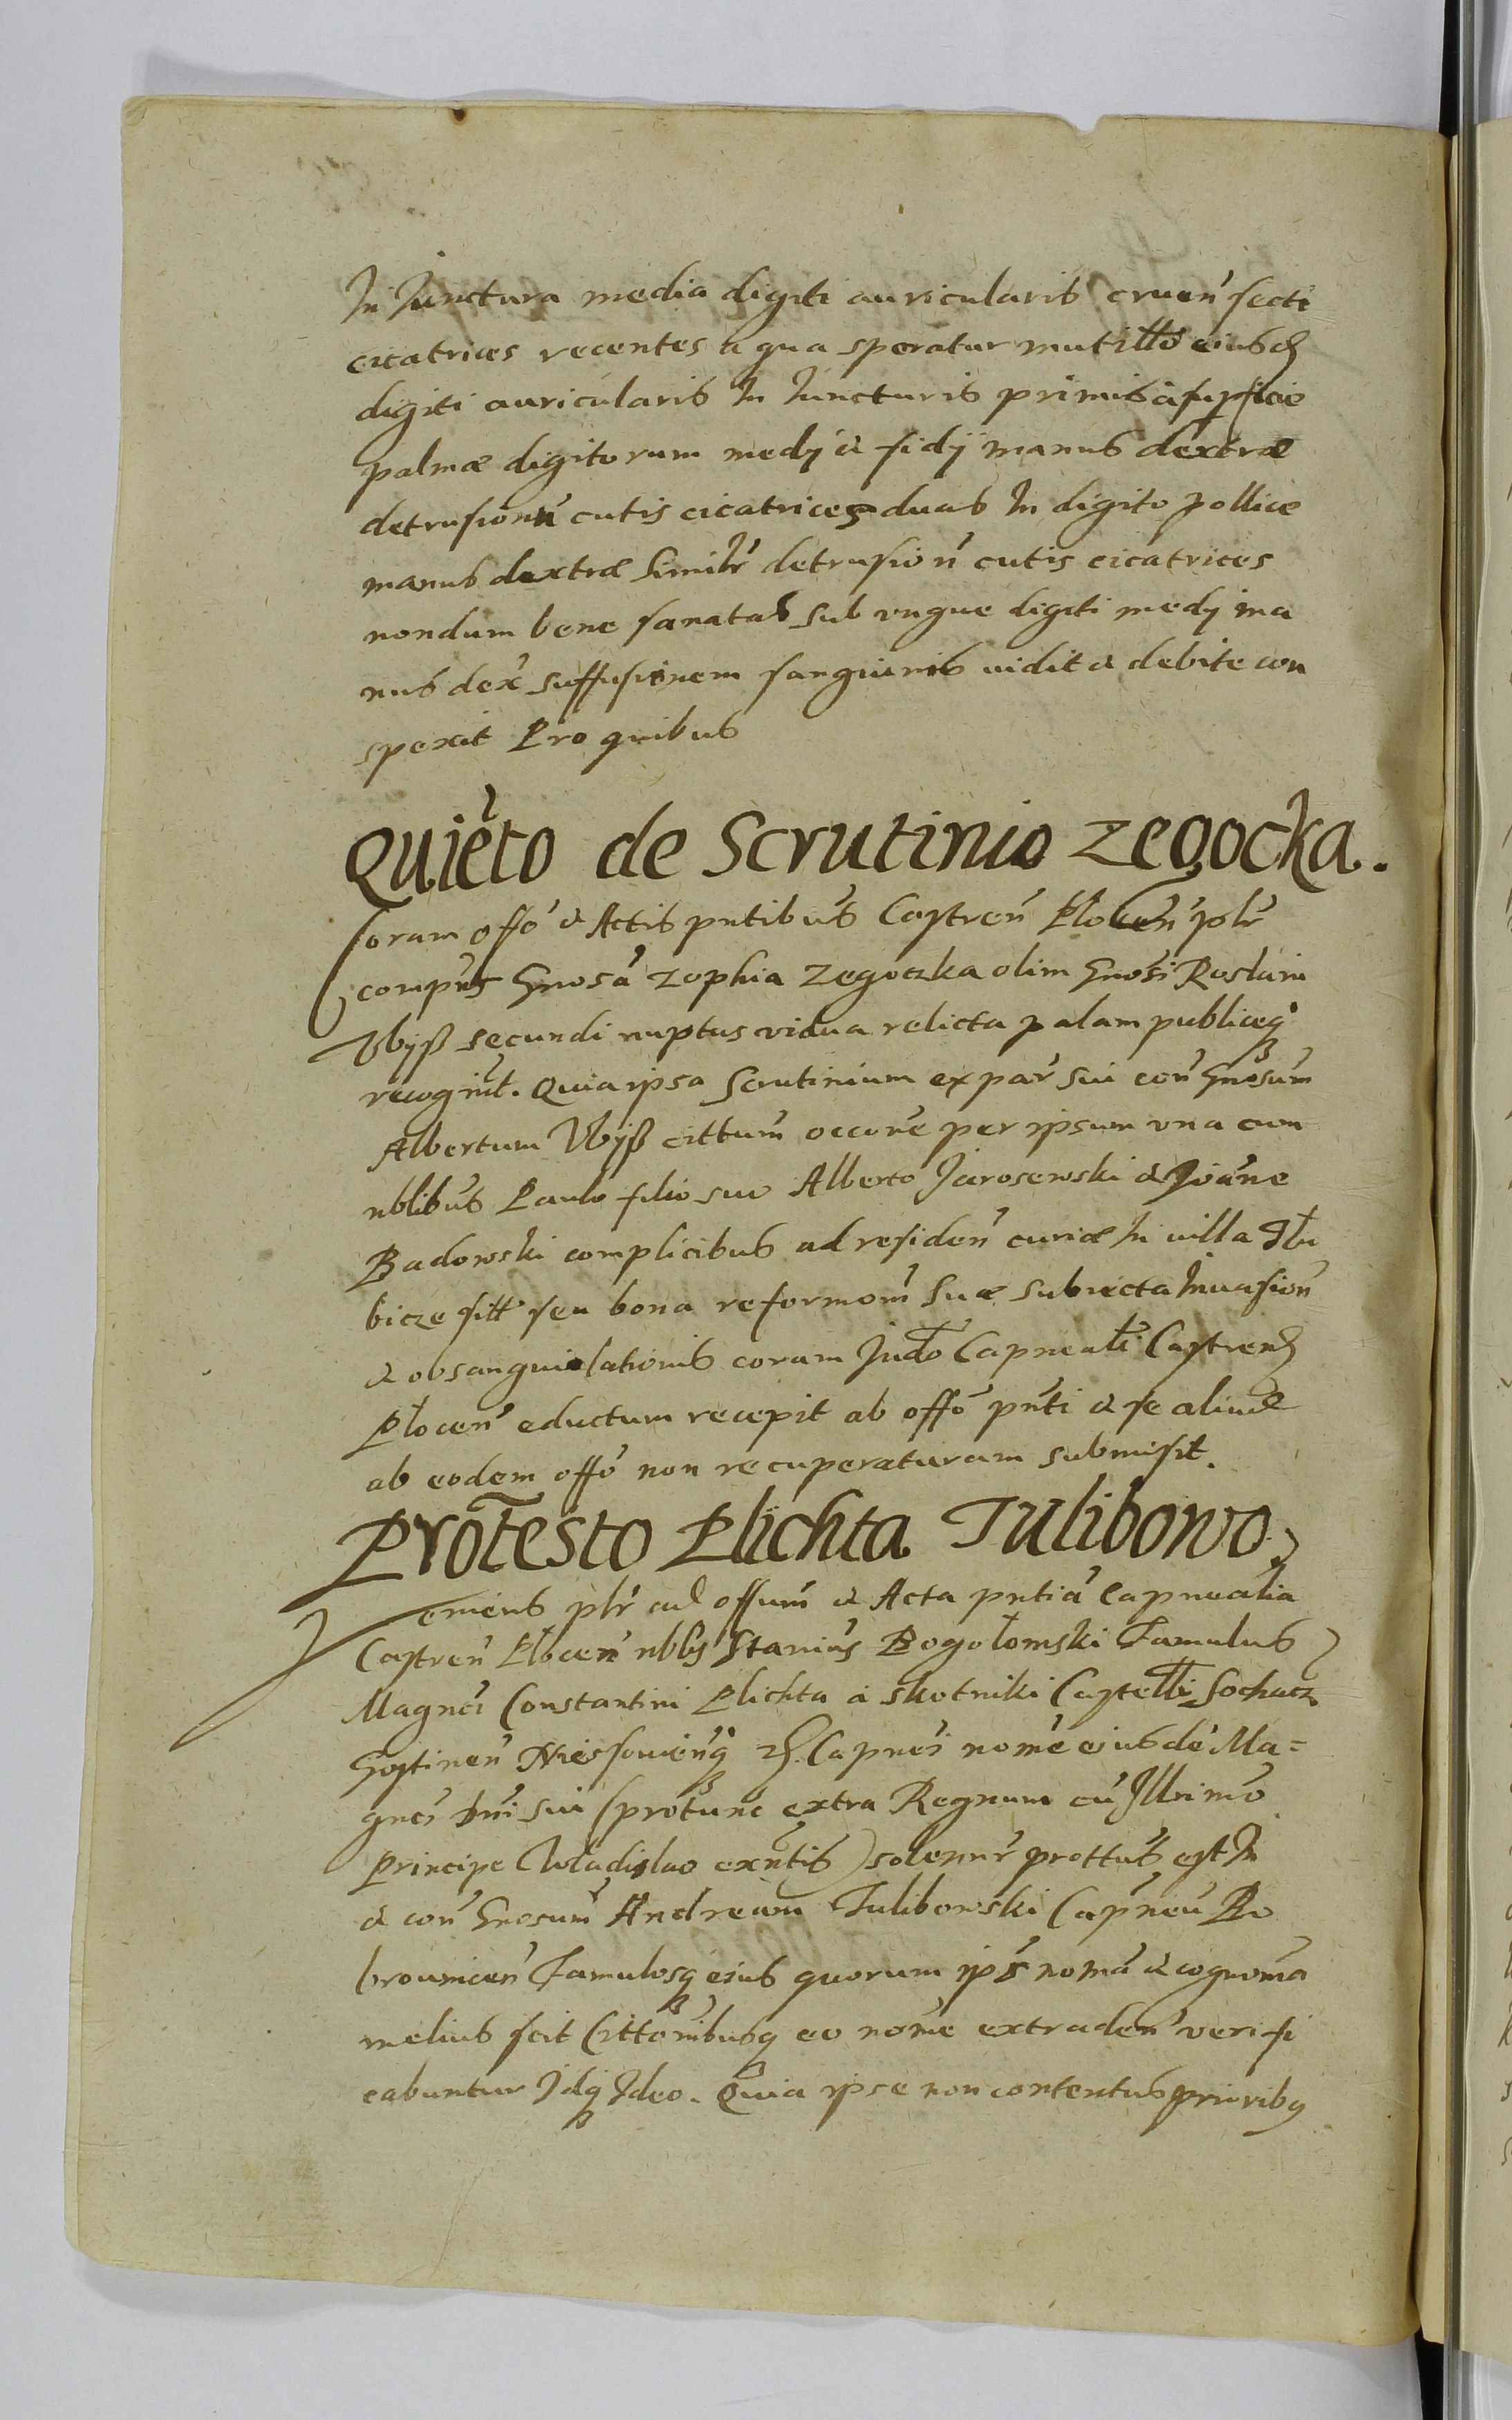 In Iunctura media digiti auricularis cruen secti
cicatrices recentes a qua speratur mutillo eiusd
digiti auricularis In Iuncturis primis a supficie
palmæ digitorum medij & fidij manus dextræ
detrusionu cutis cicatrices duas In digito pollice
manus dextræ Similr detrusion cutis cicatrices
nondum bene sanatas sub ungue digiti medij ma
nus dex suffusionem sanguinis vidit & debite con
spexit Pro quibus
Quieto de Scrutinio Zegocka.
Coram offo & Actis pntibus Castren Płocen plr
compns Gnosa Zophia Zegoczka olim Gnosi Roslani
Vbÿß secundi nuptus vidua relicta palam publiceq
recognit. Quia ipsa Scrutinium ex par sui con Gnosum
Albertum Vbÿß cittum occone per ipsum una cum
nblibus Paulo filio suo Alberto Jarosewski & Joane
Badowski complicibus ad residen curiæ In villa Głu
bicze sitt seu bona reformom Suæ subiecta Inuasion
& obsanguiolationis coram Judo Capneali Castren
Płocen eductum recepit ab offo pnti & se aliud
ab eodem offo non recuperaturam submisit.
Protesto Plichta Tulibowo
Veniens plr ad offum & Acta pntia Capnealia
Castren Płocen nblis Stanius Bogołomski Famulus
Magnci Constantini Plichta a Skotniki Castelli Sochacz
Gostinen Capnei nome eiusde Ma=
gnci Dni sui (protunc extra Regnum cu Illrimo
Principe Wladislao exntis) solennr prottus est In
& con Gnosum Andream Tulibowski Capneu Bo
brounicen Famulosq eius quorum ips noma & cognoma
melius scit Cittonibusq eo nome extraden verifi
cabuntur Idq Ideo. Quia ipse non contentus prioribq